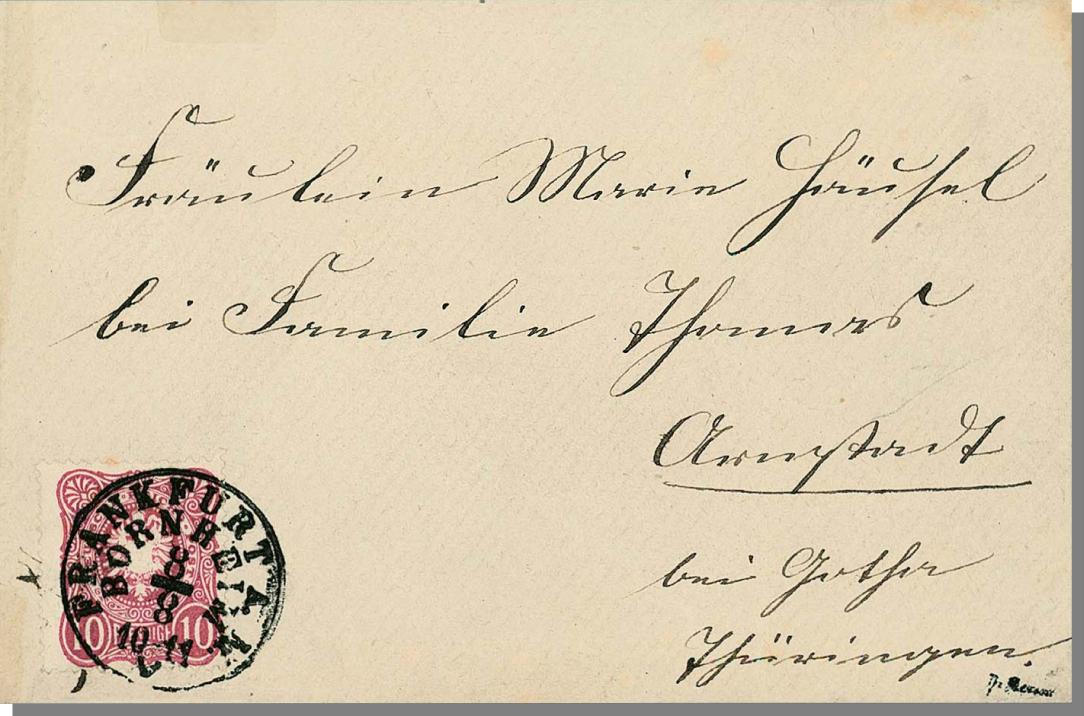 Fräulein Marie Häusel
bei Familie Thomas
Arnstadt
bei Gotha
Thüringen.
FRANKFURT A M
BORNHEIM
8
8
10-11
10 PFENNIGE 10